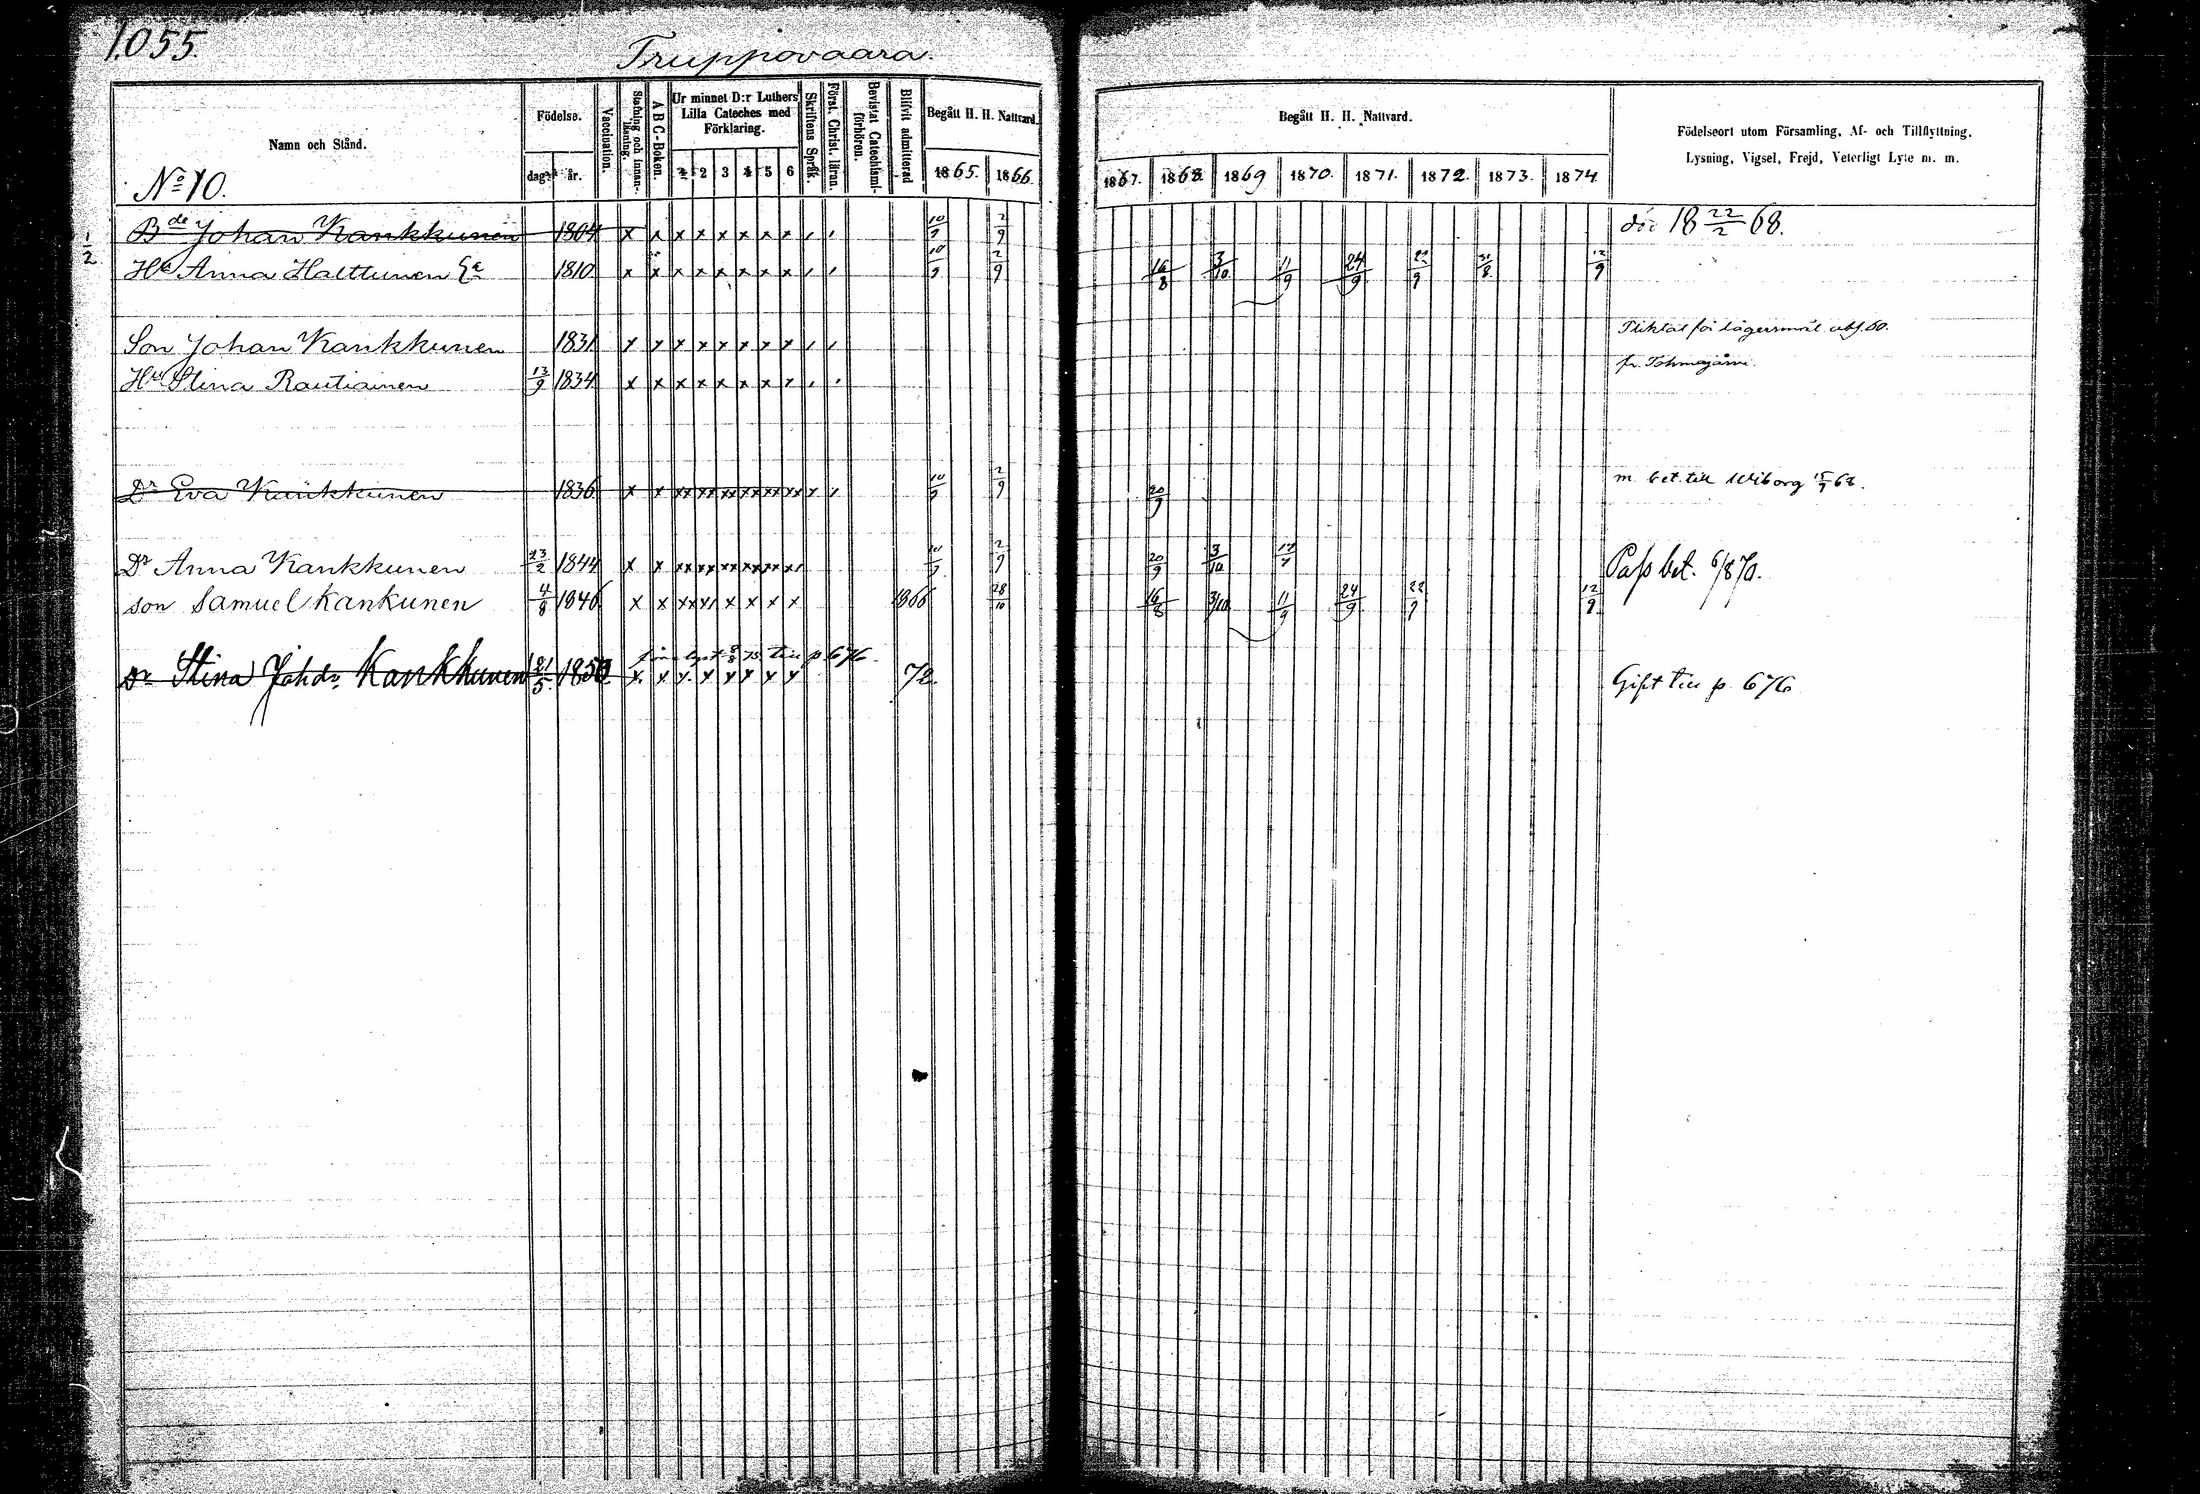 1055.
Truppovaara.
Namn och Stånd.
Födelse.
dag. år.
Vaccination.
Stafning och innanläsning.
A B C-Boken.
Ur minnet D:r Luthers Lilla Cateches med Förklaring.
1 2 3 4 5 6
Skriftens Språk.
Först. Christ. läran.
Bevistat Catechismi-förhören.
Blifvit admitterad
Begått H. H. Nattvard.
1865. 1866.
Begått H. H. Nattvard.
1867. 1868. 1869 1870. 1871. 1872. 1873. 1874.
Födelseort utom Församling, Af- och Tillflyttning,
Lysning, Vigsel, Frejd, Veterligt Lyte m. m.
No 10.
1/2 Bde Johan Kankkunen 1804 x x x x x x x x 10/9 2/9 död 18 22/2 68.
Hu Anna Halttunen Ea 1810 x x x x x x x x 10/9 2/9 16/8 3/10 11/9 24/9 22/9 31/8 12/9
Son Johan Kankkunen 1831 x x x x x x x x Pliktat för lägersmål abs. 60.
Hu Stina Rautiainen 13/9 1834 x x x x x x x x fr. Tohmajärvi.
Dr Eva Kankkunen 1836 x x xx xx xx xx xx xx x 10/9 2/9 20/9 m. bet. till Wiborg 15/9 68.
Dr Anna Kankkunen 23/2 1844 x x xx xx xx xx xx x 10/9 2/9 20/9 3/10 Pass bet. 6/8 70.
son Samuel Kankunen 4/8 1846 x x xx x x x x x 1866 28/10 16/8 3/10 11/9 24/9 22/9 12/9
till p 676.
Dr Stina Johdr Kankkunen 21/5 1850 x x x x x x x x 72. Gift till p. 676